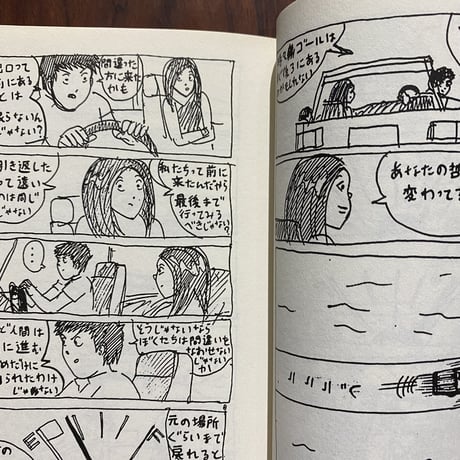 出口って
にある
とは
らないん
じゃない?
間違った
方に来た
かも
引き返した
って遠い
のは同じ
じゃない?
私たちって前に
来たんだから
最後まで
行ってみる
べきじゃない?
…
ど人間は
に進む
めだけに
られたわけ
じゃない
そうじゃないなら
ぼくたちは間違いも
なおせない
じゃないか
元の場所
ぐらいまで
戻れると
ゴールは
ろにある
かもしれない
あなたの
変わって